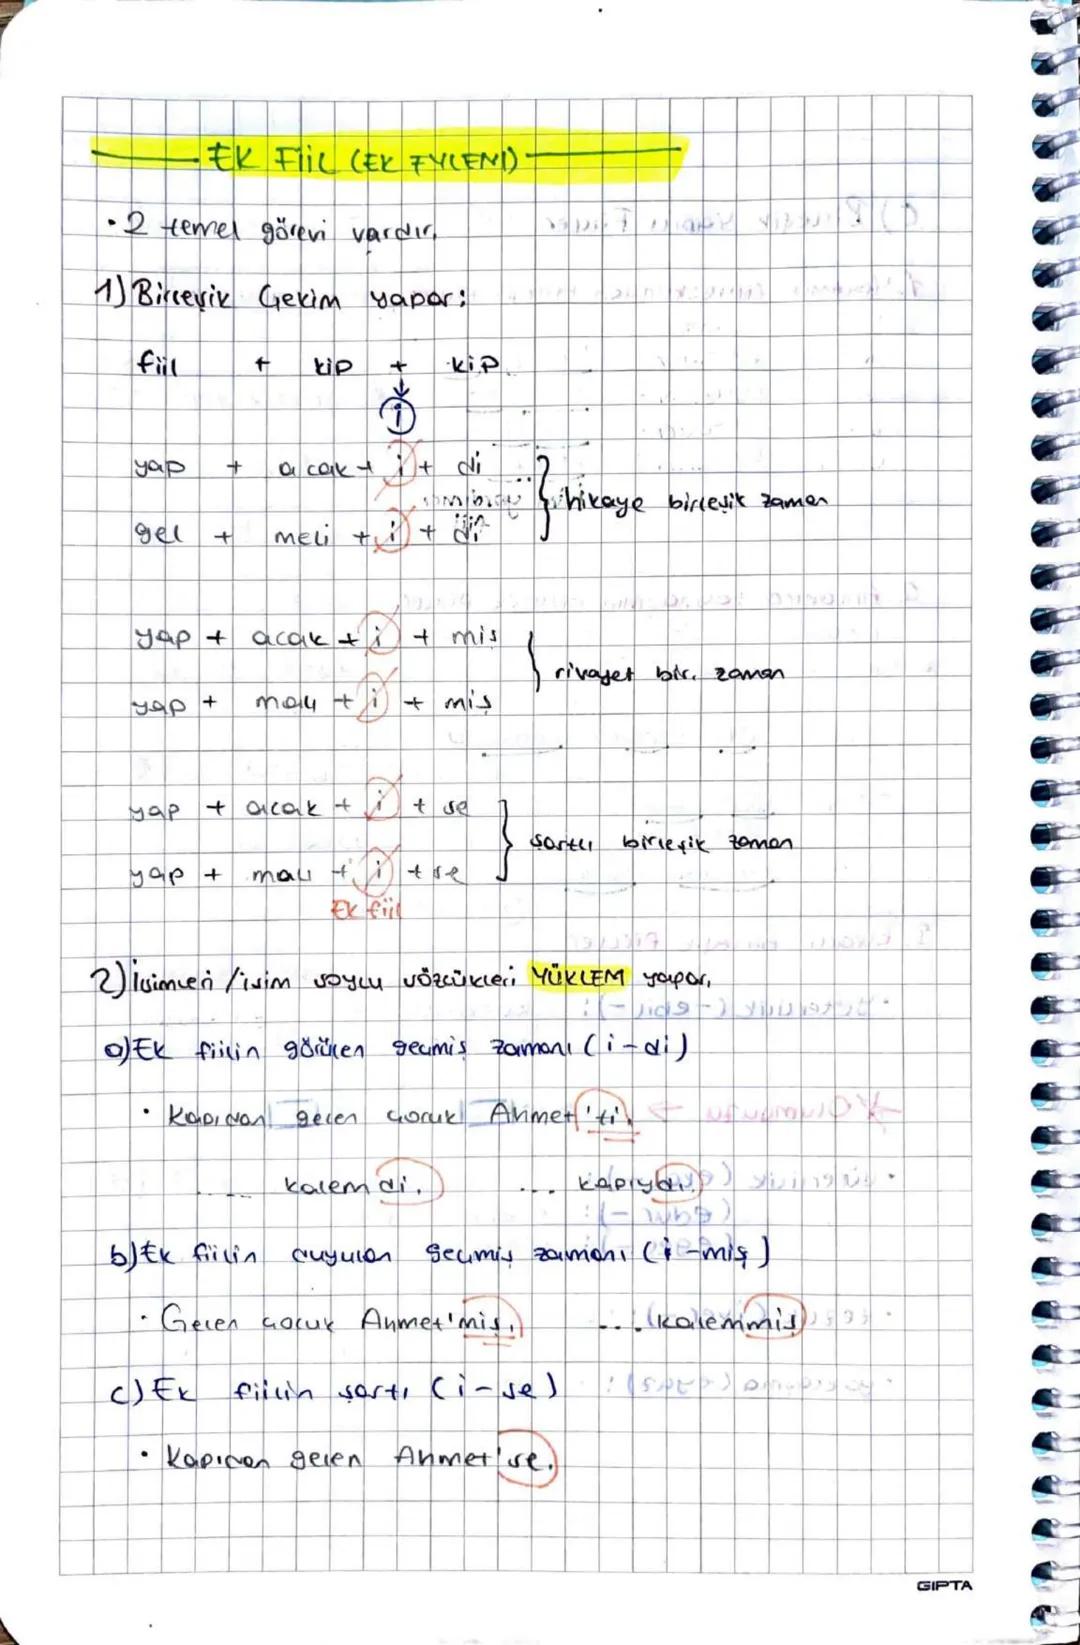 EK FİİL (EK EYLEM)
• 2 temel görevi vardır.
1) Birleşik Çekim yapar:
fiil + kip + kip
i
yap + acak + i + di
gel + meli + i + di
hikaye birleşik zaman
yap + acak + i + miş
yap + malı + i + miş
rivayet bir. zaman
yap + acak + i + se
yap + malı + i + se
şartlı birleşik zaman
Ek fiil
2) İsimleri / isim soylu sözcükleri YÜKLEM yapar.
a) Ek fiilin görülen geçmiş zamanı (i-di)
• Kapıdan geçen çocuk Ahmet'ti.
.... kalemdi. .... kapıydı.
b) Ek fiilin duyulan geçmiş zamanı (i-miş)
• Gelen çocuk Ahmet'miş. .... kalemmiş
c) Ek fiilin şartı (i-se)
• Kapıdan gelen Ahmet'se.
GIPTA